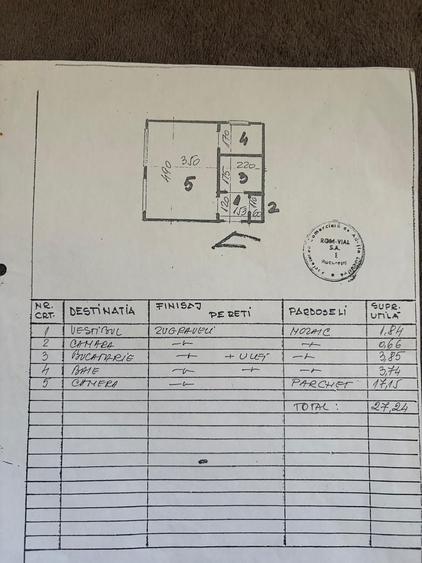 170
4
350
220
490
175
3
5
120
1
153
110
60
2
ROM-VIAL
S.A.
1
București
NR. CRT. DESTINATIA FINISAJ PERETI PARDOSELI SUPR. UTILĂ
1 VESTIBUL ZUGRAVELI MOZAIC 1,84
2 CAMARA -〃- -〃- 0,66
3 BUCATARIE -〃- + ULEI -〃- 3,85
4 BAIE -〃- -〃- -〃- 3,74
5 CAMERA -〃- PARCHET 17,15
TOTAL: 27,24